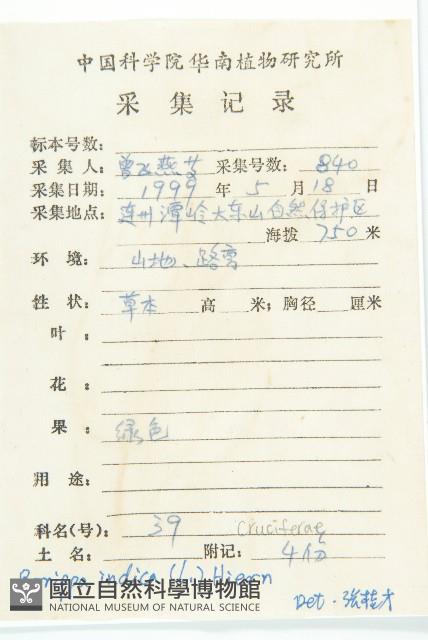 中国科学院华南植物研究所
采集记录
标本号数:
采集人: 曾飞燕等 采集号数: 840
采集日期: 1999 年 5 月 18 日
采集地点: 连州潭岭大东山自然保护区
海拔 750 米
环境: 山地、路旁
性状: 草本 高 米; 胸径 厘米
叶:
花:
果: 绿色
用途:
科名(号): 39 Cruciferae
土名: 附记: 4份
indica (L.) Hieron
國立自然科學博物館
NATIONAL MUSEUM OF NATURAL SCIENCE
Det. 张桂才